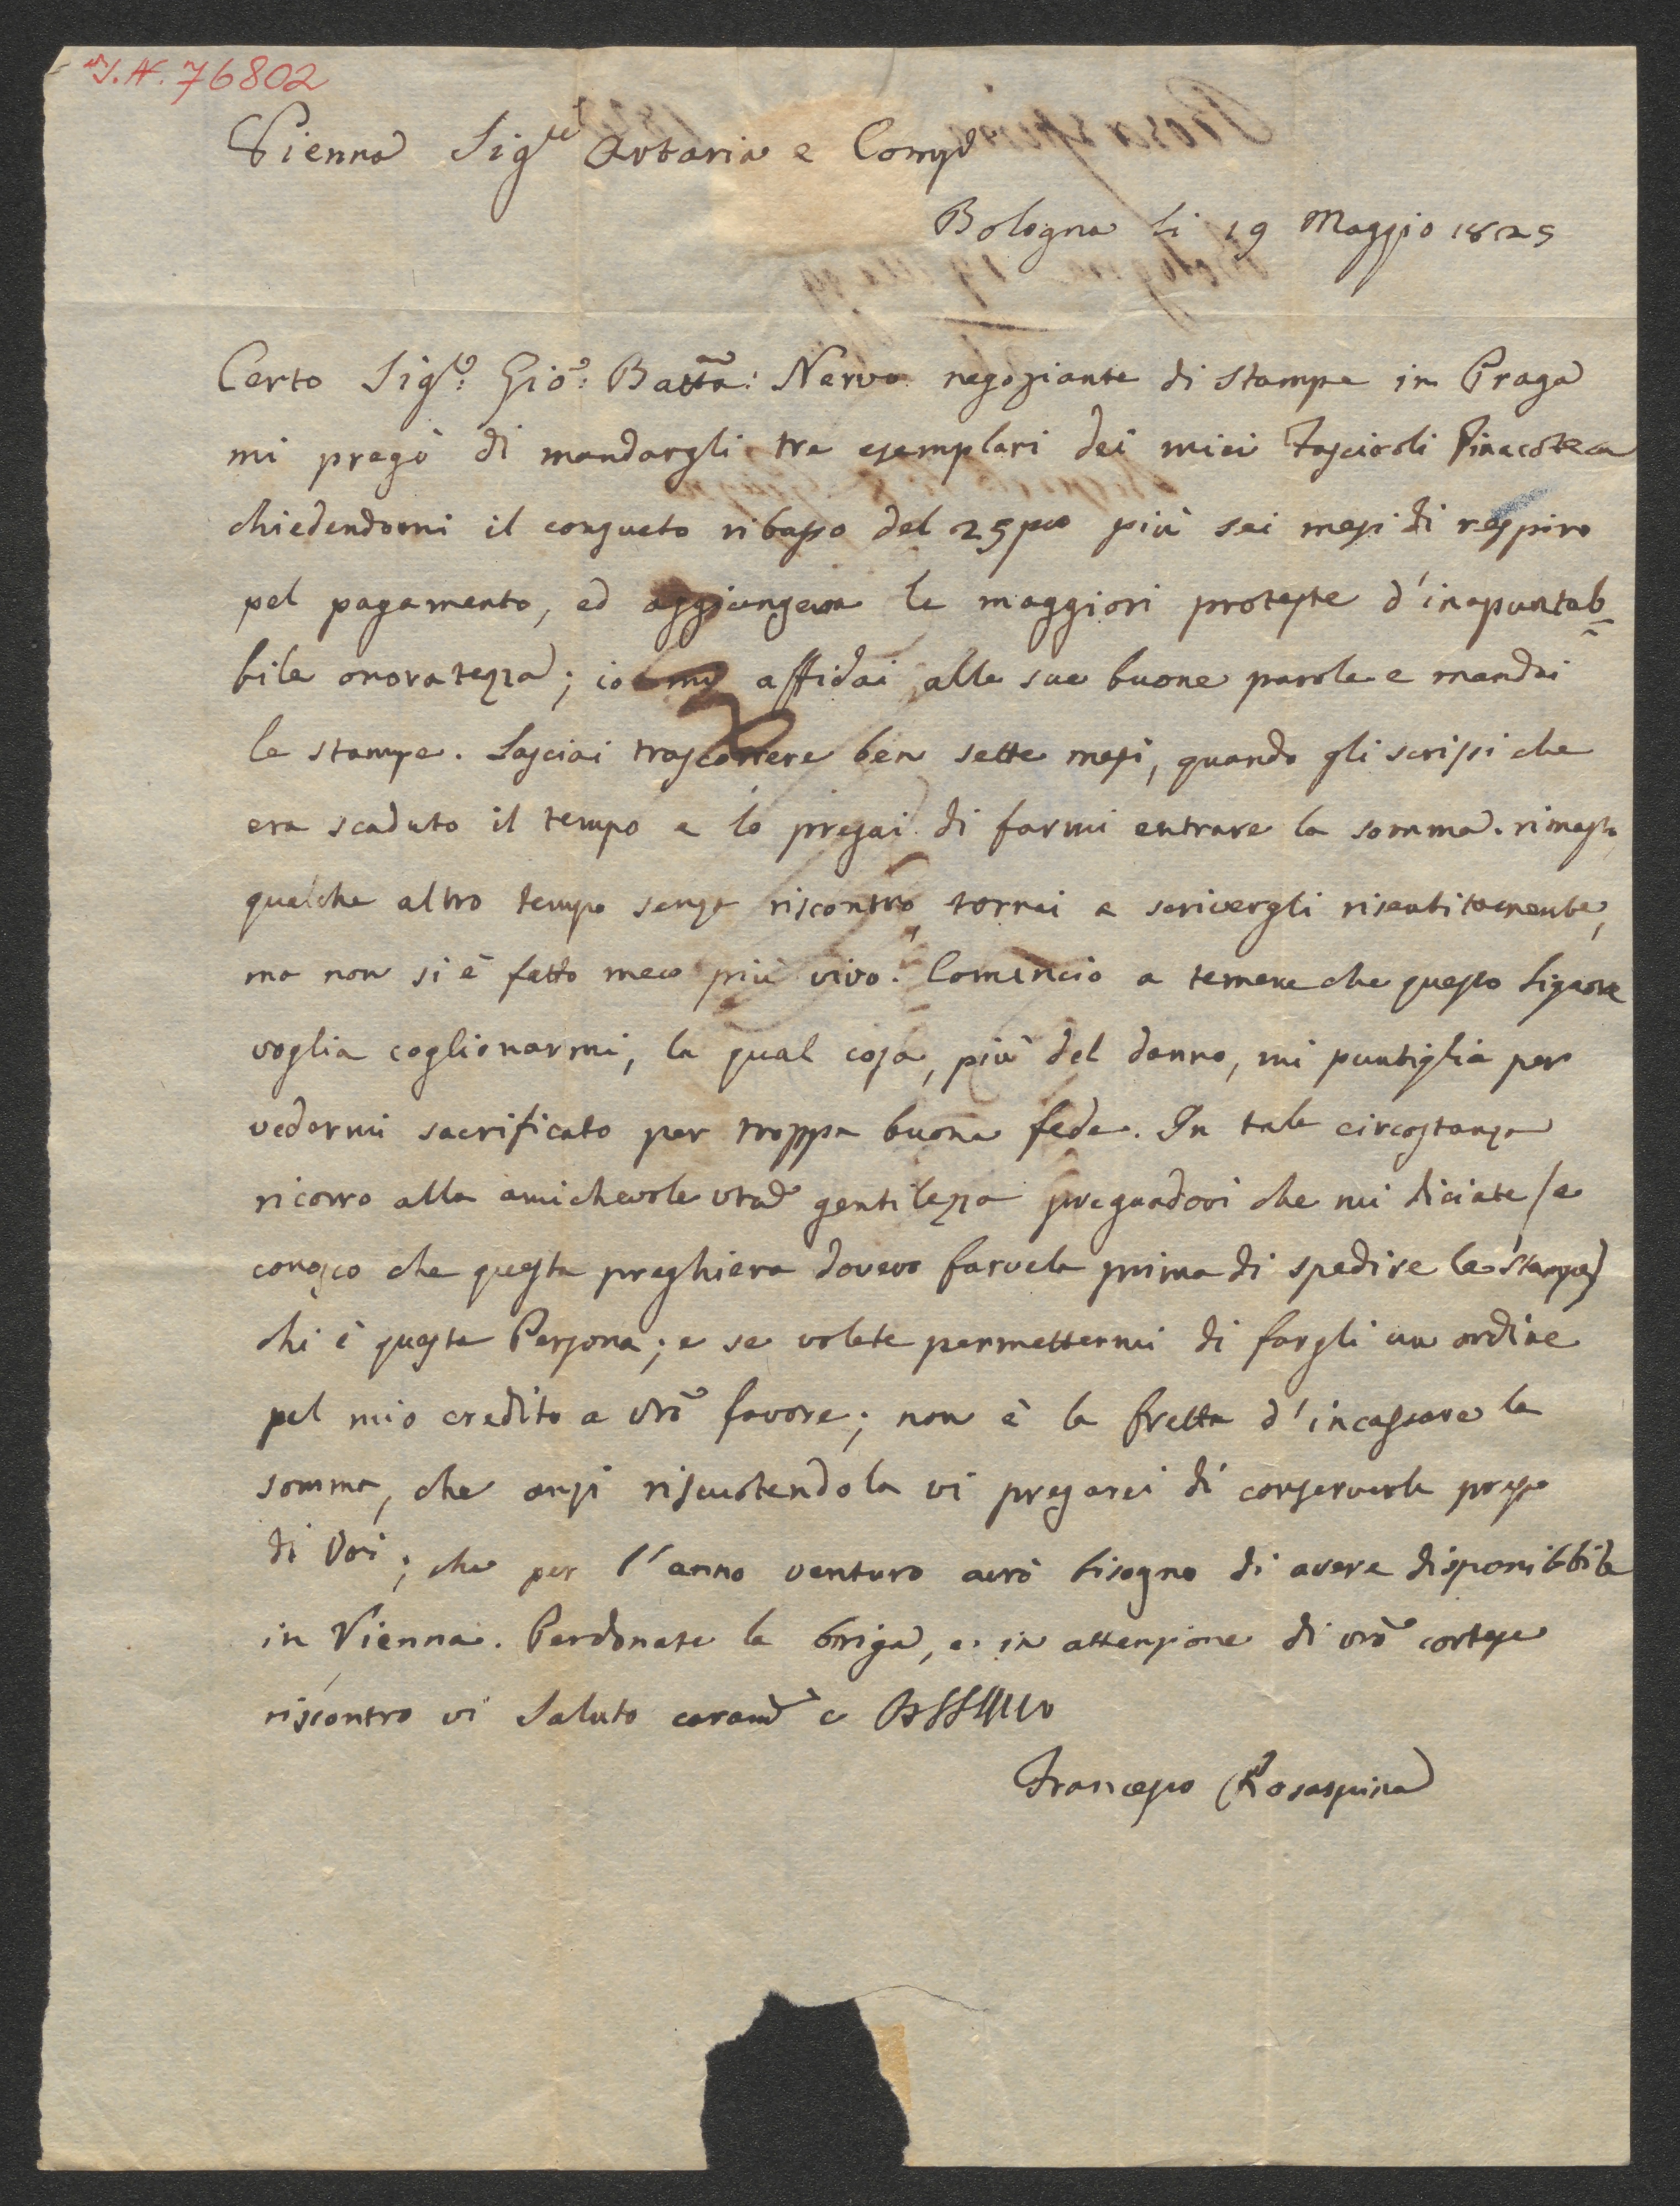 I.N. 76802
Vienna Sig.ri Artaria e Comp.
Bologna li 19 Maggio 1825
Certo Sig.e: Gio: Batta: Nervo negoziante di stampe in Praga
mi pregò di mandargli tre esemplari dei miei Fascicoli Pinacoteca
chiedendomi il consueto ribasso del 25 pco più sei mesi di respiro
pel pagamento, ed aggiungeva le maggiori proteste d'inapuntab=
bile onoratezza; io mi affidai alle sue buone parole e mandai
le stampe. Lasciai trascorrere ben sette mesi, quando gli scrissi che
era scaduto il tempo e lo pregai di farmi entrare la somma. rimasto
qualche altro tempo senza riscontro tornai a scrivergli risentitamente,
ma non si è fatto meco più vivo. Comincio a temere che questo Signore
voglia coglionarmi, la qual cosa, più del danno, mi puntiglia per
vedermi sacrificato per troppa buona fede. In tale circostanza
ricorro alla amichevole vrã gentilezza pregandovi che mi diciate (e
conosco che questa preghiera dovevo farvela prima di spedire le stampe)
chi è questa Persona; e se volete permettermi di fargli un ordine
pel mio credito a vrõ favore; non è la fretta d'incassare la
somma, che anzi riscuotendola vi pregarei di conservarla presso
di Voi; che per l'anno venturo avrò bisogno di avere disponibbile
in Vienna. Perdonate la briga, e in attenzione di vrõ cortese
riscontro vi saluto caram.e e
Francesco Rosaspina